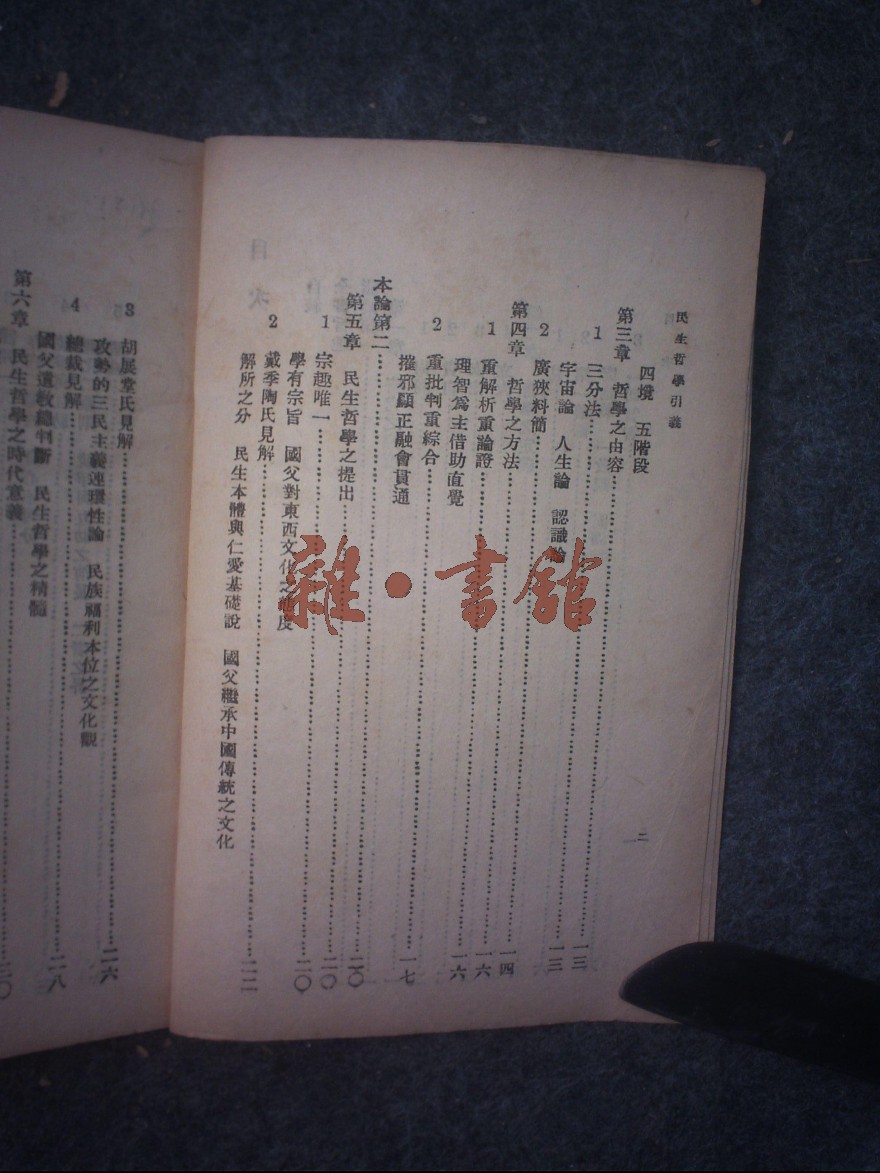 民生哲學引義 二
四境 五階段
第三章 哲學之內容……一三
1 三分法……一三
宇宙論 人生論 認識論
2 廣狹料簡……一四
第四章 哲學之方法……一六
1 重解析重論證……一六
理智爲主借助直覺
2 重批判重綜合……一七
摧邪顯正融會貫通
本論第二……二〇
第五章 民生哲學之提出……二〇
1 宗趣唯一……二〇
學有宗旨 國父對東西文化之態度
2 戴季陶氏見解……二二
解所之分 民生本體與仁愛基礎說 國父繼承中國傳統之文化
3 胡展堂氏見解……二六
攻勢的三民主義連環性論 民族福利本位之文化觀
4 總裁見解……二八
國父遺教總判斷 民生哲學之精髓
第六章 民生哲學之時代意義……三〇
雜·書館